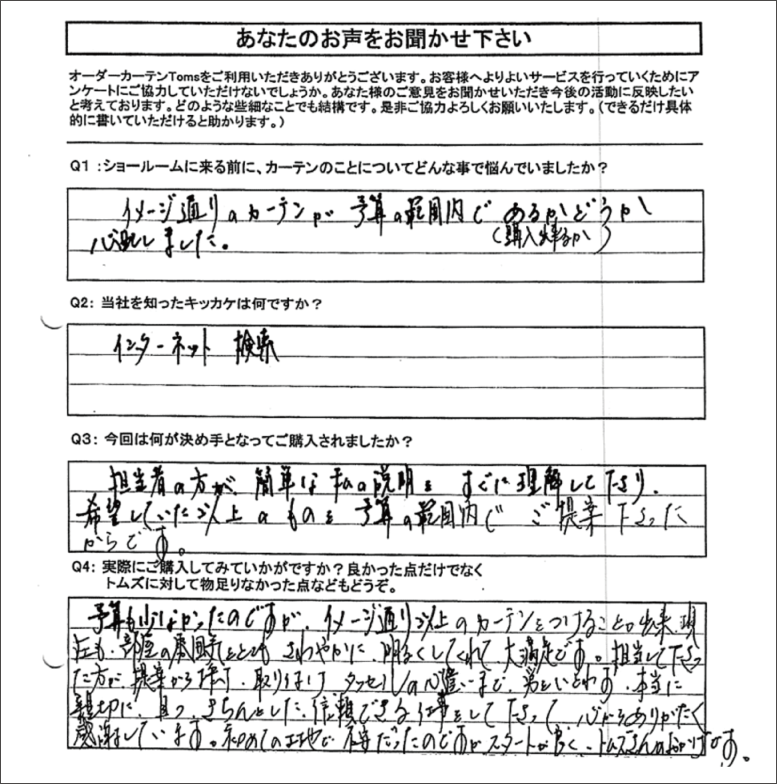 あなたのお声をお聞かせ下さい
オーダーカーテンTomsをご利用いただきありがとうございます。お客様へよりよいサービスを行っていくためにア
ンケートにご協力していただけないでしょうか。あなた様のご意見をお聞かせいただき今後の活動に反映したい
と考えております。どのような些細なことでも結構です。是非ご協力よろしくお願いいたします。(できるだけ具体
的に書いていただけると助かります。)
Q1 :ショールームに来る前に、カーテンのことについてどんな事で悩んでいましたか?
イメージ通りのカーテンが 予算の範囲内で あるかどうか
(購入出来るか)
心配しました。
Q2: 当社を知ったキッカケは何ですか?
インターネット 検索
Q3: 今回は何が決め手となってご購入されましたか?
担当者の方が、簡単な私の説明を すぐに理解して下さり、
希望していた以上のものを予算の範囲内で ご提案下さった
からです。
Q4: 実際にご購入してみていかがですか?良かった点だけでなく
トムズに対して物足りなかった点などもどうぞ。
予算も少なかったのですが、イメージ通り以上のカーテンをつけることが出来、現
在も、部屋の雰囲気をとても さわやかに、明るくしてくれて 大満足です。担当して下さっ
た方が、提案から採寸、取り付け、タッセルの心遣いまで、男女いとわず、本当に
親切に、且つ きちんとした、信頼できる仕事をして下さって、心からありがたく
感謝しています。初めての土地で 不安だったのですが スタートが良く、トムズさんのおかげです。